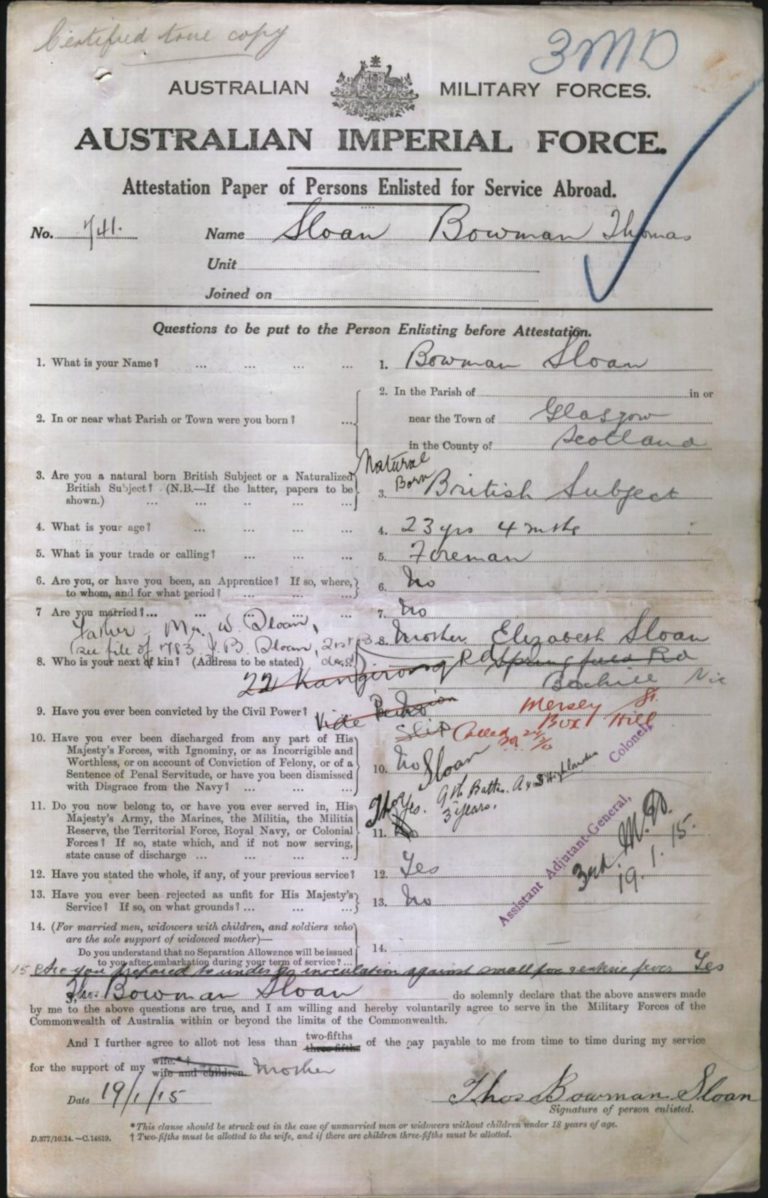 Certified true copy
3MD
AUSTRALIAN MILITARY FORCES.
AUSTRALIAN IMPERIAL FORCE.
Attestation Paper of Persons Enlisted for Service Abroad.
No. 741. Name Sloan Bowman Thomas
Unit
Joined on
Questions to be put to the Person Enlisting before Attestation.
1. What is your Name? ... ... ... ... 1. Bowman Sloan
2. In or near what Parish or Town were you born? ... 2. In the Parish of in or
near the Town of Glasgow
in the County of Scotland
3. Are you a natural born British Subject or a Naturalized British Subject? (N.B.—If the latter, papers to be shown.) Natural Born 3. British Subject
4. What is your age? ... ... ... 4. 23 yrs 4 mths
5. What is your trade or calling? ... ... 5. Foreman
6. Are you, or have you been, an Apprentice? If so, where, to whom, and for what period? ... ... 6. No
7 Are you married?... ... ... ... ... 7. No
Father - Mr. W. Sloan,
see file of 783 J. B. Sloan,
8. Who is your next of kin? (Address to be stated) 8. Mother Elizabeth Sloan
22 Kangerong Rd Springfield Rd
Boxhill Vic
9. Have you ever been convicted by the Civil Power? No
Vide Pension Slip
Mersey St.
Box Hill
10. Have you ever been discharged from any part of His Majesty's Forces, with Ignominy, or as Incorrigible and Worthless, or on account of Conviction of Felony, or of a Sentence of Penal Servitude, or have you been dismissed with Disgrace from the Navy? ... ... ... 10. No
Sloan
11. Do you now belong to, or have you ever served in, His Majesty's Army, the Marines, the Militia, the Militia Reserve, the Territorial Force, Royal Navy, or Colonial Forces? If so, state which, and if not now serving, state cause of discharge ... ... ... 11. Yes. 9th Battn. A & S Highlanders
3 years.
12. Have you stated the whole, if any, of your previous service? 12. Yes
13. Have you ever been rejected as unfit for His Majesty's Service? If so, on what grounds? ... ... ... 13. No
Assistant Adjutant-General, Colonel,
3rd M.D.
19.1.15.
14. (For married men, widowers with children, and soldiers who are the sole support of widowed mother)—
Do you understand that no Separation Allowance will be issued to you after embarkation during your term of service? ... 14.
15 Are you prepared to undergo inoculation against small pox & enteric fever Yes
I, Thos Bowman Sloan do solemnly declare that the above answers made
by me to the above questions are true, and I am willing and hereby voluntarily agree to serve in the Military Forces of the
Commonwealth of Australia within or beyond the limits of the Commonwealth.
And I further agree to allot not less than two-fifths three-fifths of the pay payable to me from time to time during my service
for the support of my wife.*† wife and children. Mother
Date 19/1/15 Thos Bowman Sloan
Signature of person enlisted.
*This clause should be struck out in the case of unmarried men or widowers without children under 18 years of age.
D.377/10.14.—C.14519. † Two-fifths must be allotted to the wife, and if there are children three-fifths must be allotted.